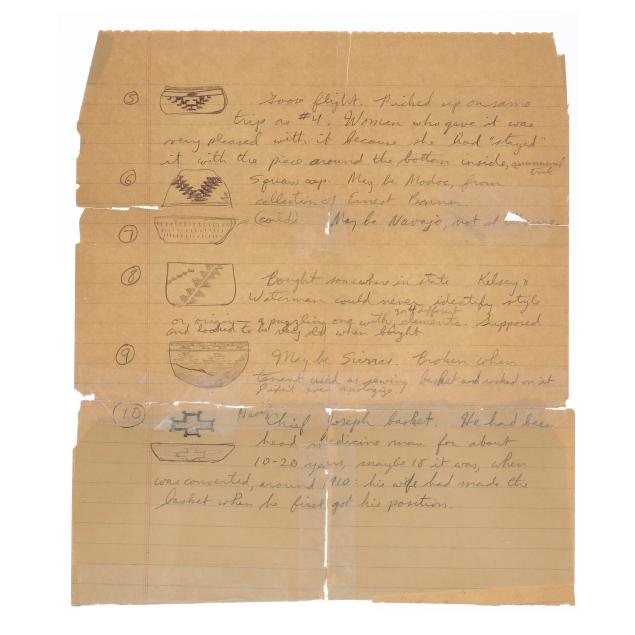 5 Goose flight. Picked up on same
trip as #4. Woman who gave it was
very pleased with it because she had "stayed"
it with the piece around the bottom inside, unusual
trick
6 Squaw cap. May be Modoc, from
collection of Ernest
7 (coiled) May be Navajo, not
8 Bought somewhere in state Kelsey &
Waterman could never identify style
or origin - a puzzling one with elements. Supposed
and looked to be very old when bought
9 May be Sierras. Broken when
tenant used as sewing basket and rocked on it
10 Chief Joseph basket. He had been
head medicine man for about
10-20 years, maybe 18 it was, when
was converted, around 1910: his wife had made the
basket when he first got his position.